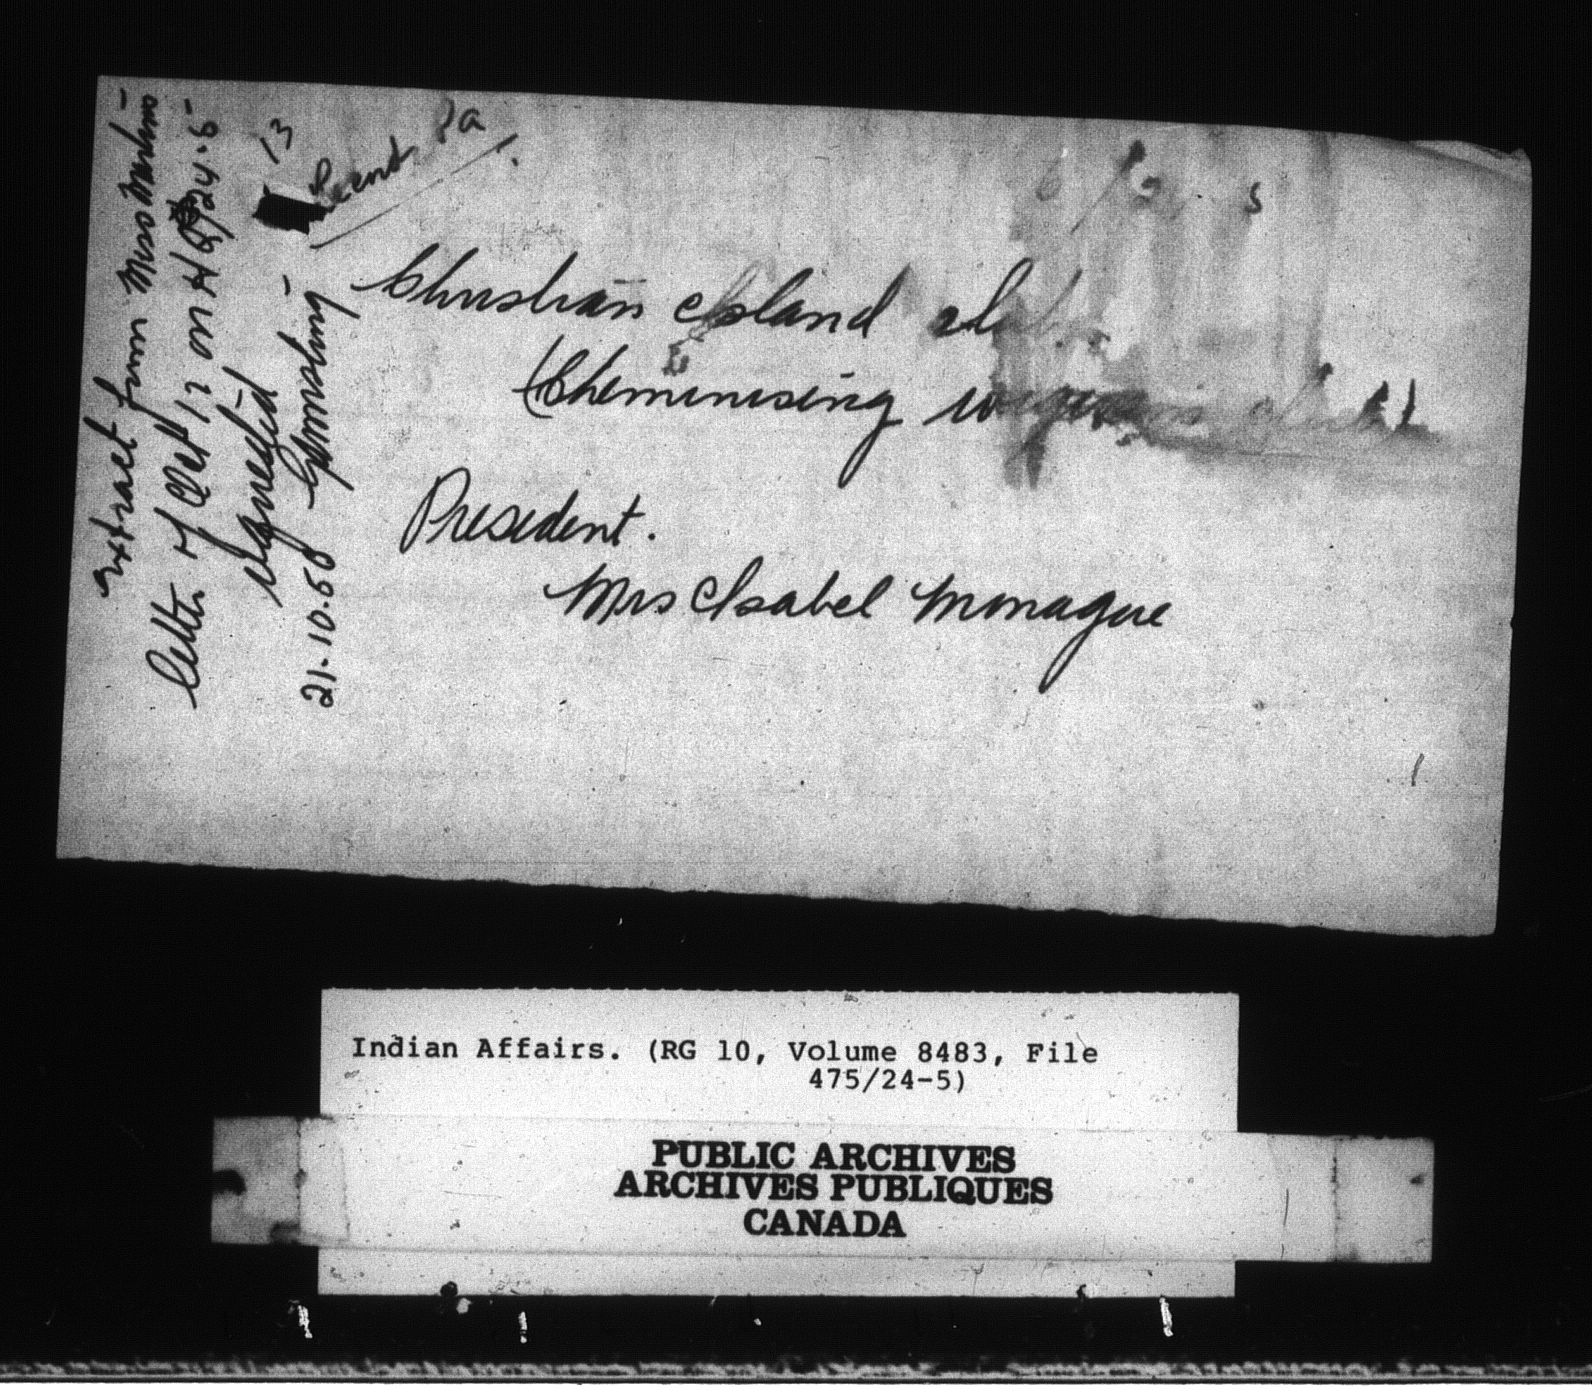 extract from Miss
letter of Oct 17 on HQ/24.5-
required
21.10.50
13
Christian Island
(Cheminising
President.
Mrs Isabel Monague
Indian Affairs. (RG 10, Volume 8483, File
475/24-5)
PUBLIC ARCHIVES
ARCHIVES PUBLIQUES
CANADA